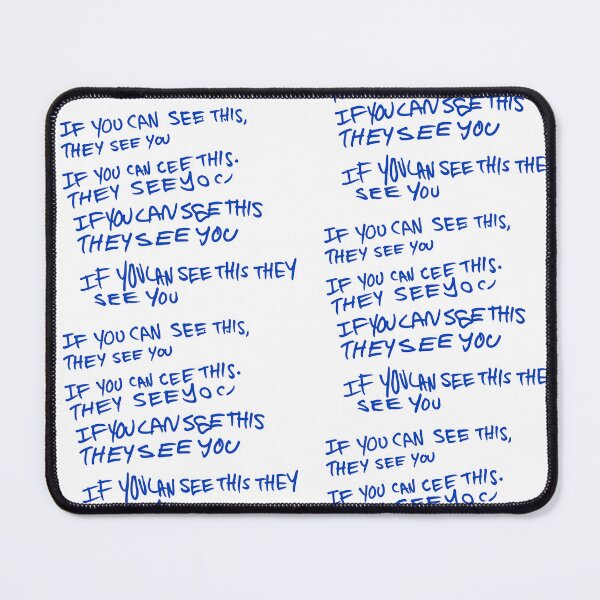 IF YOU CAN SEE THIS,
THEY SEE YOU
IF YOU CAN CEE THIS.
THEY SEE YOU
IF YOU CAN SEE THIS
THEY SEE YOU
IF YOU CAN SEE THIS THEY
SEE YOU
IF YOU CAN SEE THIS,
THEY SEE YOU
IF YOU CAN CEE THIS.
THEY SEE YOU
IF YOU CAN SEE THIS
THEY SEE YOU
IF YOU CAN SEE THIS THEY
IF YOU CAN SEE THIS
THEY SEE YOU
IF YOU CAN SEE THIS THE
SEE YOU
IF YOU CAN SEE THIS,
THEY SEE YOU
IF YOU CAN CEE THIS.
THEY SEE YOU
IF YOU CAN SEE THIS
THEY SEE YOU
IF YOU CAN SEE THIS THE
SEE YOU
IF YOU CAN SEE THIS,
THEY SEE YOU
IF YOU CAN CEE THIS.
SEE YOU